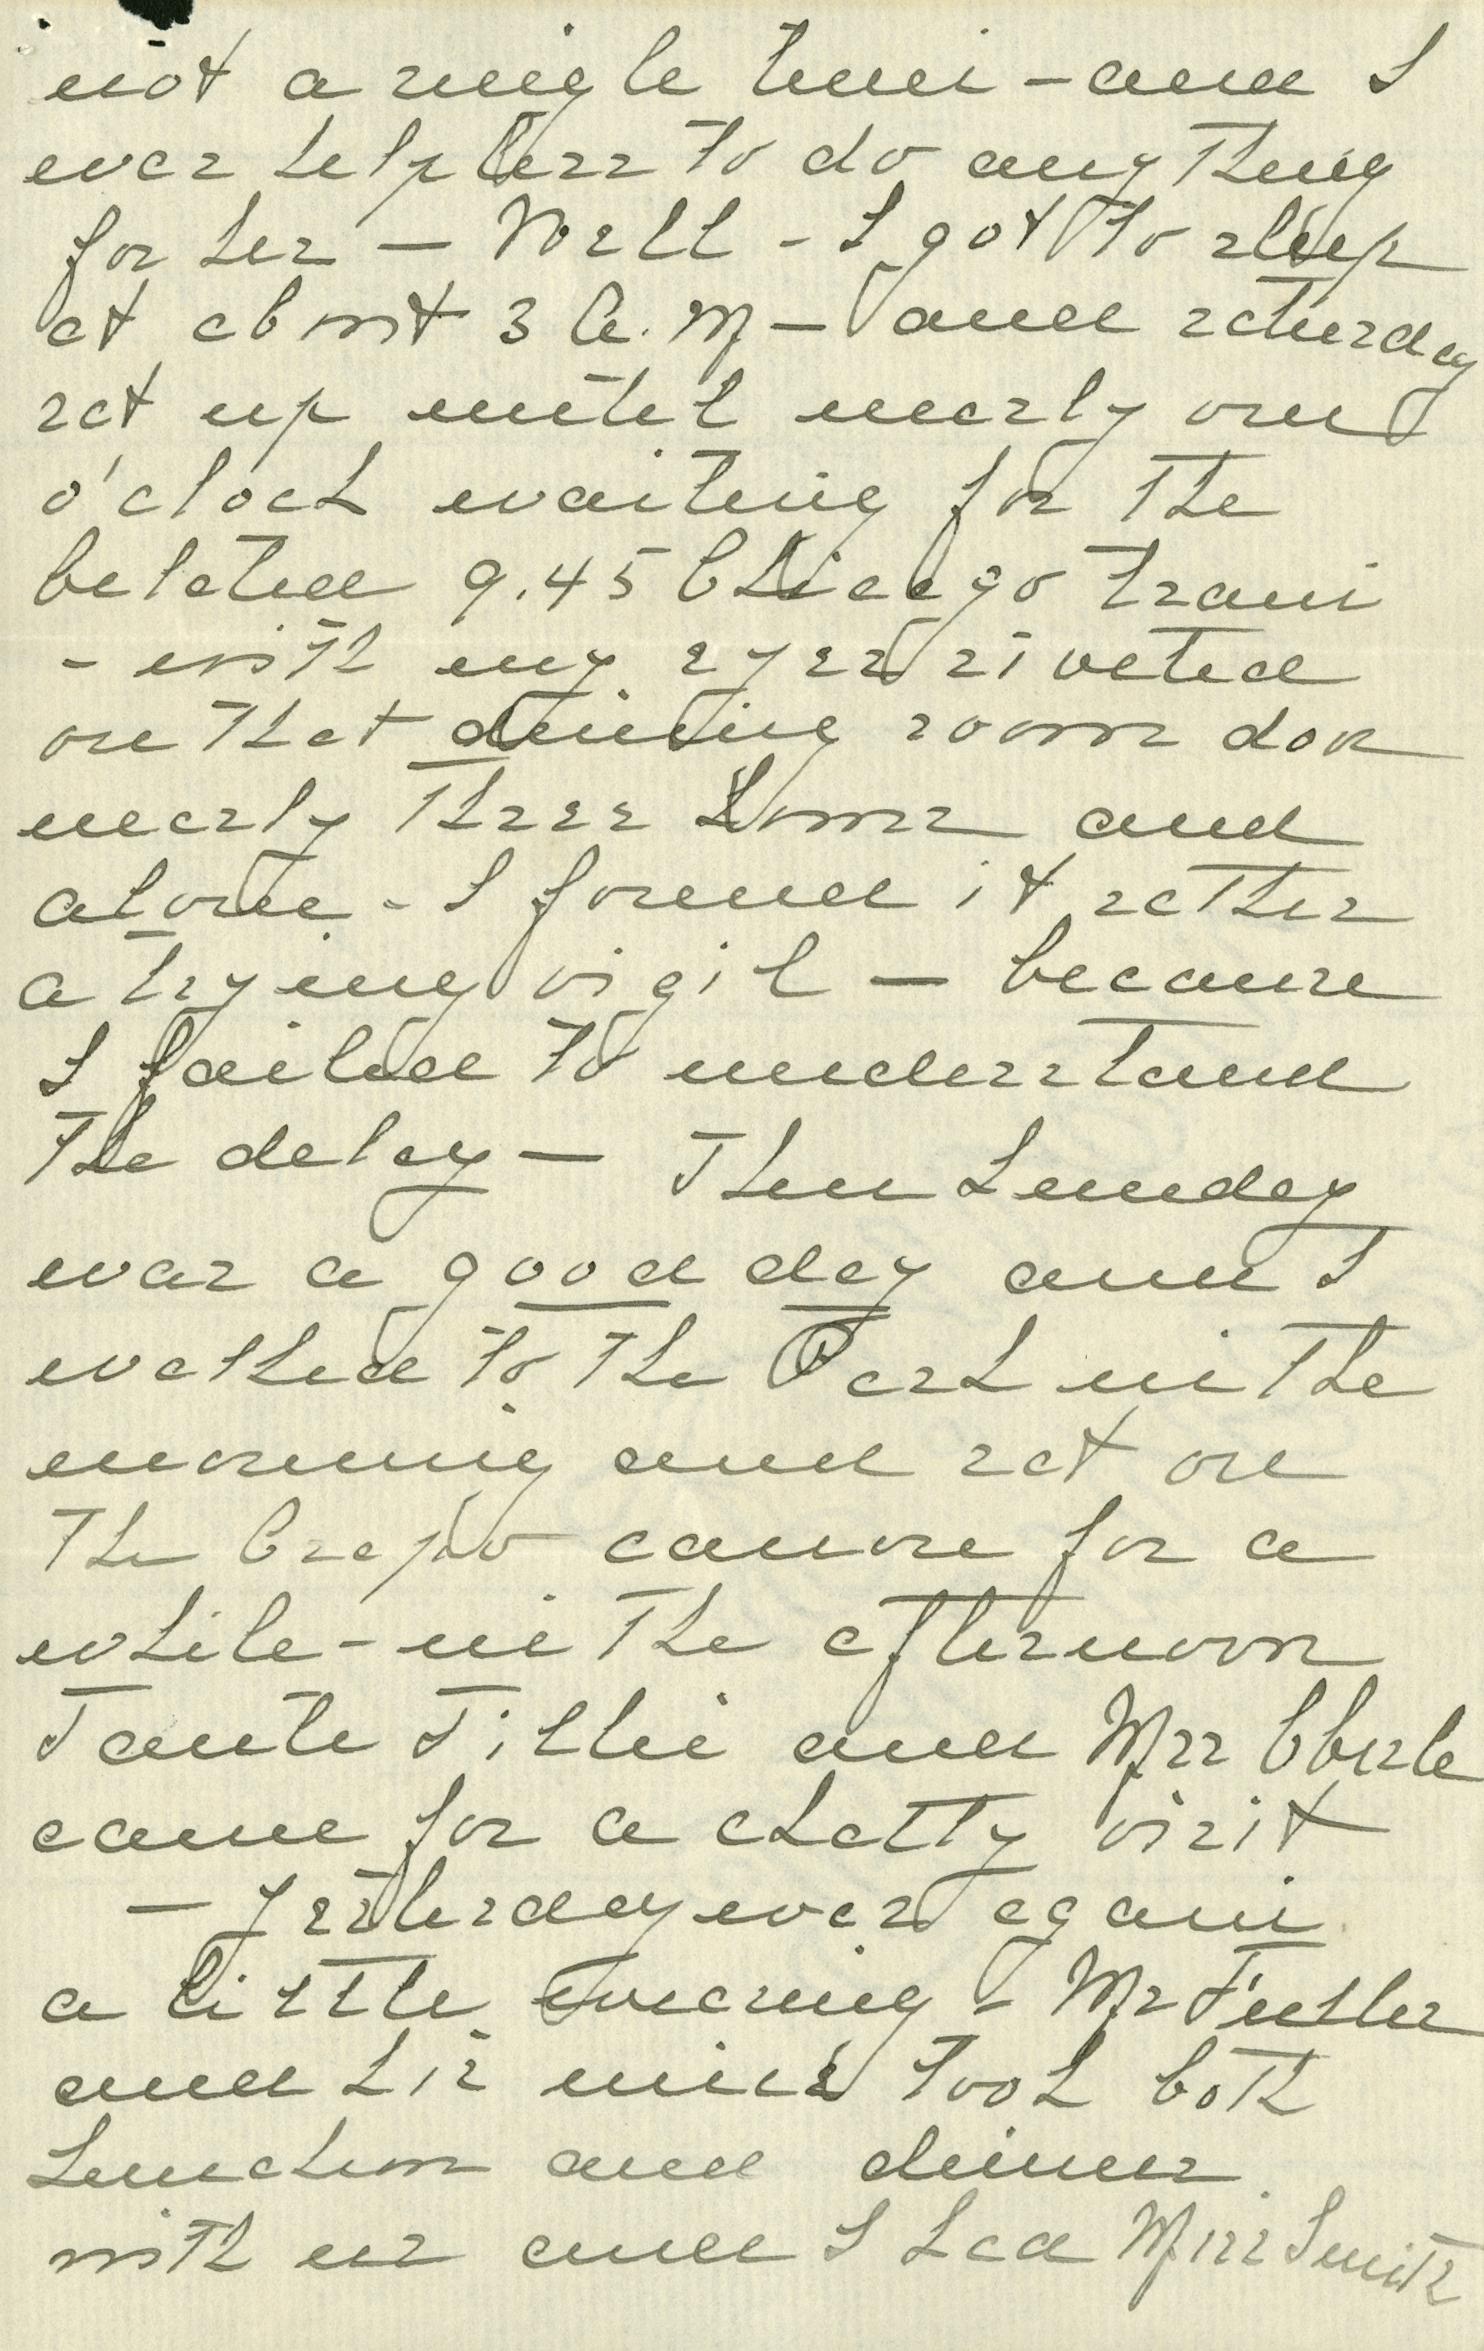 not a single time - and I
was helpless to do anything
for her - Well - I got to sleep
at about 3 A.M - and saturday
sat up until nearly one
o'clock waiting for the
belated 9.45 Chicago train
- with my eyes riveted
on that dining room door
nearly three hours and
alone - I found it rather
a trying vigil - because
I failed to understand
the delay - Then Sunday
was a good day and I
walked to the Park in the
morning and sat on
the Crespo canore for a
while - in the afternoon
Tante Tillie and Mrs Eberle
came for a chatty visit
- Yesterday was again
a little wearing - Mr
and his niece took both
luncheon and dinner
with us and I had Miss Smith